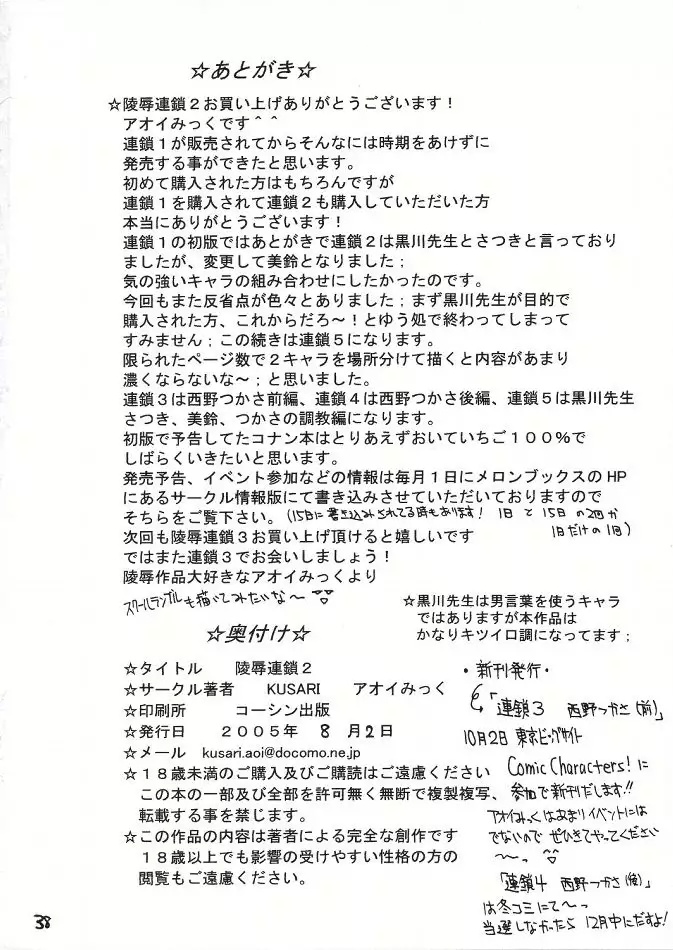 ☆あとがき☆
☆陵辱連鎖２お買い上げありがとうございます！
アオイみっくです＾＾
連鎖１が販売されてからそんなには時期をあけずに
発売する事ができたと思います。
初めて購入された方はもちろんですが
連鎖１を購入されて連鎖２も購入していただいた方
本当にありがとうございます！
連鎖１の初版ではあとがきで連鎖２は黒川先生とさつきと言っており
ましたが、変更して美鈴となりました；
気の強いキャラの組み合わせにしたかったのです。
今回もまた反省点が色々とありました；まず黒川先生が目的で
購入された方、これからだろ～！とゆう処で終わってしまって
すみません；この続きは連鎖５になります。
限られたページ数で２キャラを場所分けて描くと内容があまり
濃くならないな～；と思いました。
連鎖３は西野つかさ前編、連鎖４は西野つかさ後編、連鎖５は黒川先生
さつき、美鈴、つかさの調教編になります。
初版で予告してたコナン本はとりあえずおいていちご１００％で
しばらくいきたいと思います。
発売予告、イベント参加などの情報は毎月１日にメロンブックスのHP
にあるサークル情報版にて書き込みさせていただいておりますので
そちらをご覧下さい。（15日に書き込みされてる時もあります！ 1日と15日の2回か
1日だけの1回）
次回も陵辱連鎖３お買い上げ頂けると嬉しいです
ではまた連鎖３でお会いしましょう！
陵辱作品大好きなアオイみっくより
スクールランブルも描いてみたいな～
☆黒川先生は男言葉を使うキャラ
ではありますが本作品は
かなりキツイロ調になってます；
☆奥付け☆
☆タイトル 陵辱連鎖２
☆サークル著者 KUSARI アオイみっく
☆印刷所 コーシン出版
☆発行日 ２００５年 8 月 2 日
☆メール kusari.aoi@docomo.ne.jp
☆１８歳未満のご購入及びご購読はご遠慮ください
この本の一部及び全部を許可無く無断で複製複写、
転載する事を禁じます。
☆この作品の内容は著者による完全な創作です
１８歳以上でも影響の受けやすい性格の方の
閲覧もご遠慮ください。
・新刊発行・
「連鎖３ 西野つかさ（前）」
10月2日 東京ビッグサイト
Comic Characters!に
参加で新刊だします!!
アオイみっくはあまりイベントには
でないので ぜひきてやってください
～。
「連鎖4 西野つかさ（後）」
は冬コミにて～っ
当選しなかったら 12月中にだすよ!
38